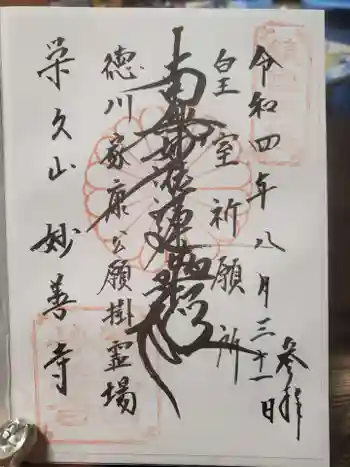 令和四年八月三十一日
参拝
皇室祈願所
南無妙法蓮華経
徳川家康公願掛霊場
栄久山 妙善寺